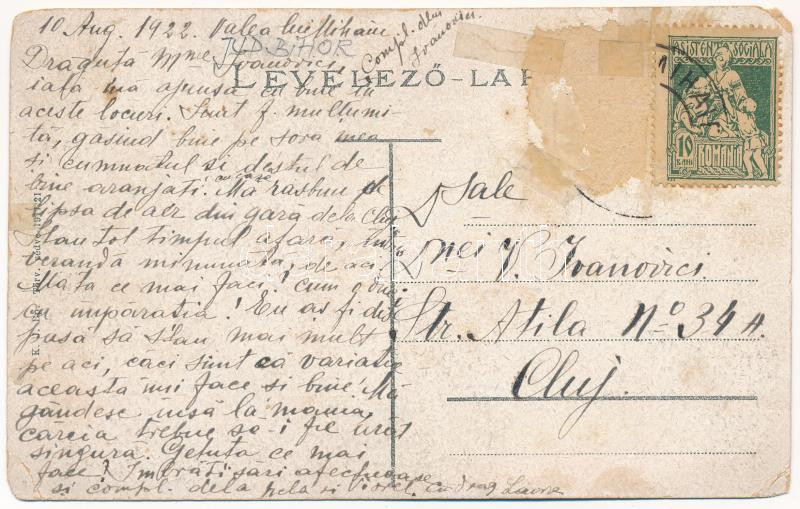 10 Aug. 1922. Valea lui Mihaiu
JUD. BIHOR
Compl. dlui
Ivanovici.
Draguță Mme Ivanovici,
LEVELEZŐ-LA
iată mă ajunsă cu bine în
aceste locuri. Sunt f. multumi-
tă, gasind bine pe sora mea
si cumnatul si destul de
bine aranjați. Mă rasbun de
lipsa de aer din gară dela Cluj
Stau tot timpul afară, în
verandă minunată, de aci.
Mata ce mai faci? Cum o duci
cu împărația! Eu as fi dis
pusă să stau mai mult
pe aci, caci simt că variatia
aceasta îmi face si bine! Mă
gandesc însă la mama
căreia trebue sa-i fie urat
singură. Getuța ce mai
face? Imbrățisari afectuoase
si compl. dela pela si Viorel. Cu drag Laura
ASISTENTA SOCIALA
10
BANI
ROMANIA
MIHAI
Dsale
Dnei V. Ivanovici
Str. Atila No 34 A.
Cluj.